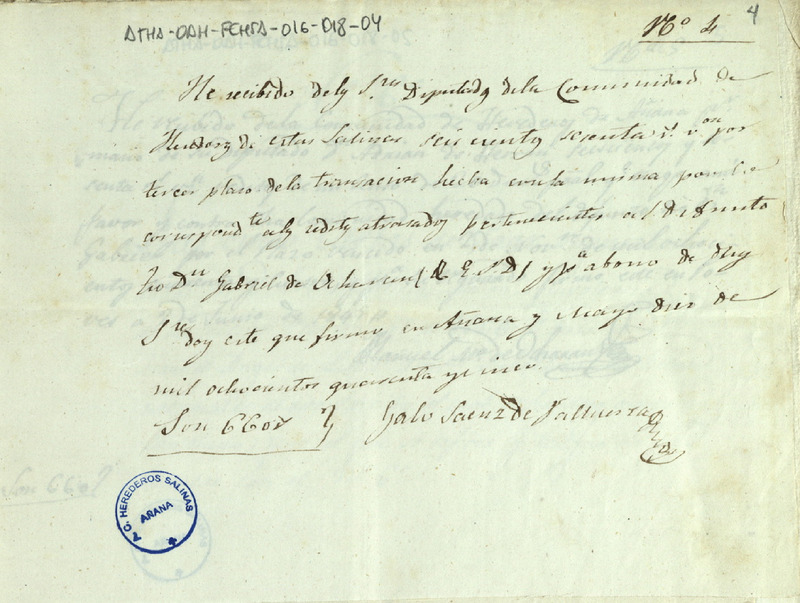 ATHA-DAH-FCHSA-016-018-04
4
Nº 4
He recibido de los S.res Diputados de la Comunidad de
Herederos de estas Salinas seiscientos sesenta r.s v.on por
tercer plazo de la transacion hecha con la misma por la
correspond.te a los reditos atrasados pertenecientes al Difunto
tio D.n Gabriel de Ocharan (Q. E. P. D.) y p.a abono de dhos
S.res doy este que firmo en Añana y Mayo dies de
mil ochocientos quarenta y cinco.
Son 660 r.s
Galo Saenz de
Son 660
P. C. HEREDEROS SALINAS
AÑANA